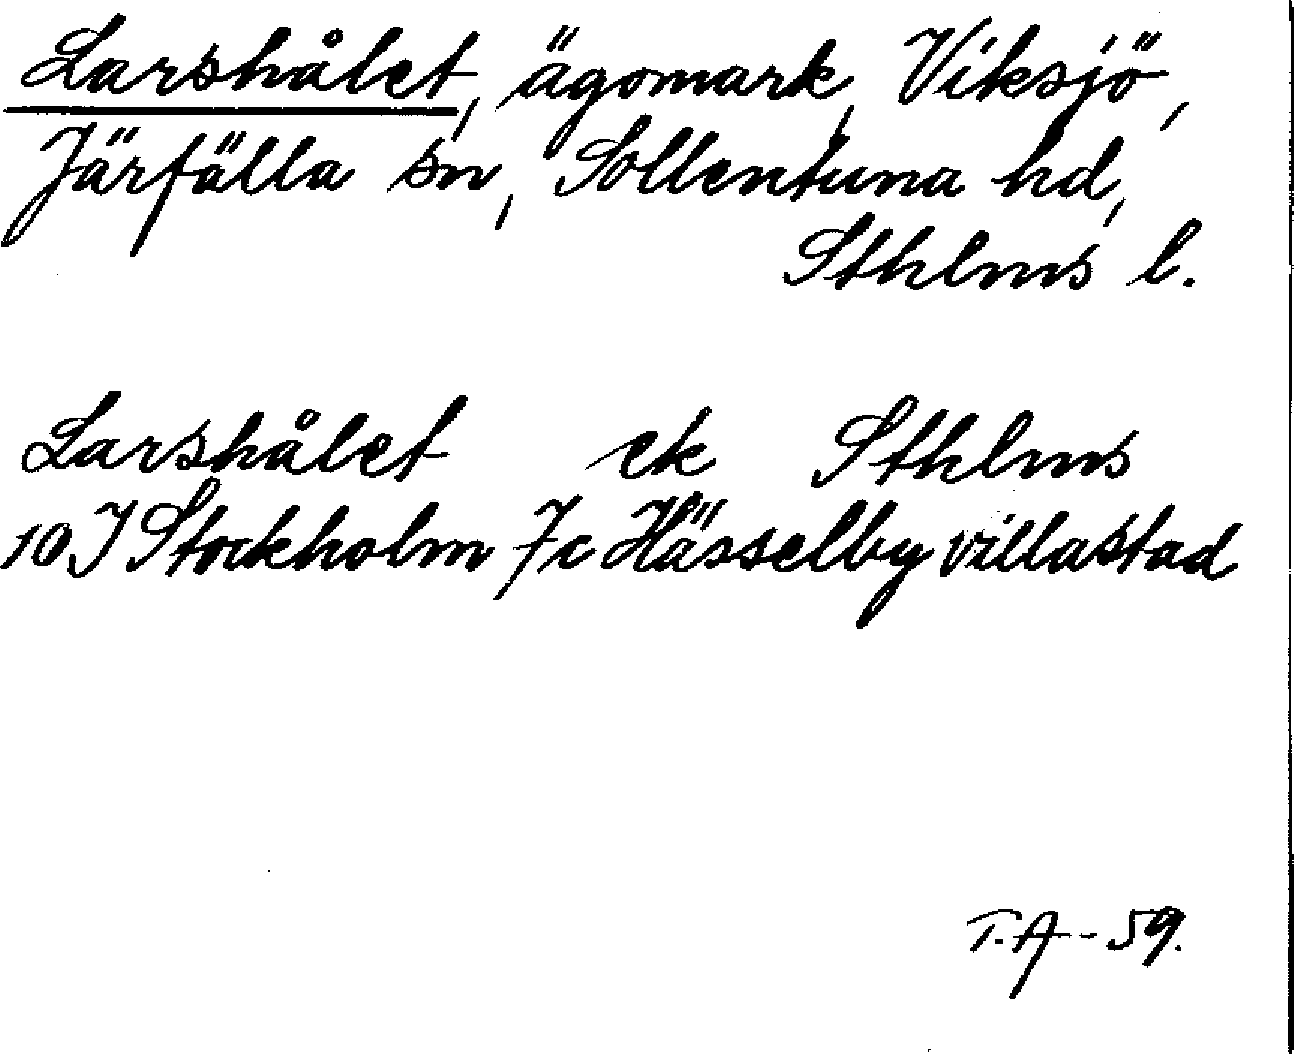 Larshålet, ägomark, Viksjö,
Järfälla sn, Sollentuna hd,
Sthlms l.
Larshålet ek Sthlms
10I Stockholm 7c Hässelby villastad
T.A-59.